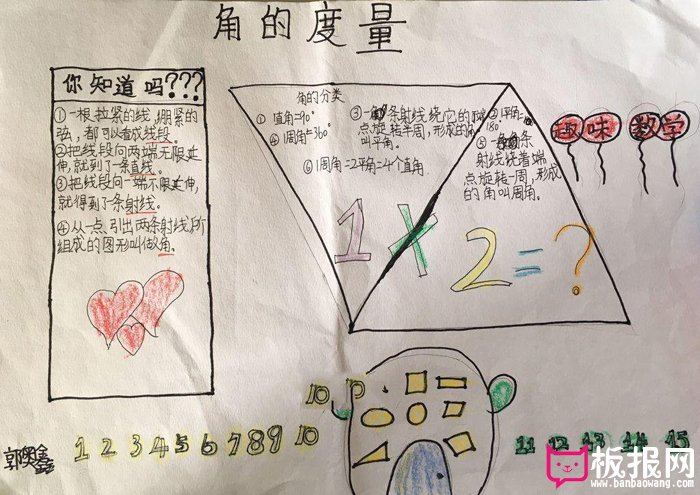 角的度量
你知道吗???
①一根拉紧的线,绷紧的
弦,都可以看成线段。
②把线段向两端无限延
伸,就到了一条直线。
③把线段向一端不限延伸,
就得到了条射线。
④从一点引出两条射线,所
组成的图形叫做角。
角的分类
① 直角=90°
④1周角=360°
⑥1周角=2平角=4个直角
③一条射线绕它的端
点旋转半周,形成的角
叫平角。
②平角=
180°
⑤一条
射线绕着端
点旋转一周,形成
的角叫周角。
趣味数学
1×2=?
10 10
1 2 3 4 5 6 7 8 9 10
11 12 13 14 15
板报网
www.banbaowang.com